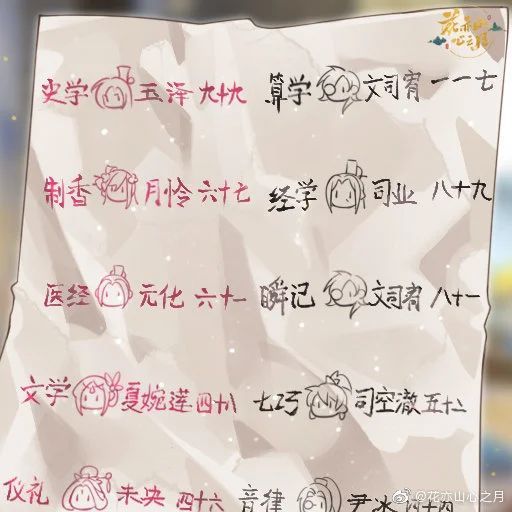 花亦山心之月
史学 玉泽 九十九 算学 文司宥 一一七
制香 月怜 六十七 经学 司业 八十九
医经 元化 六十一 瞬记 文司宥 八十一
文学 夏婉莲 四十八 七巧 司空澈 五十二
仪礼 未央 四十六 音律 尹冰 四十四
@花亦山心之月